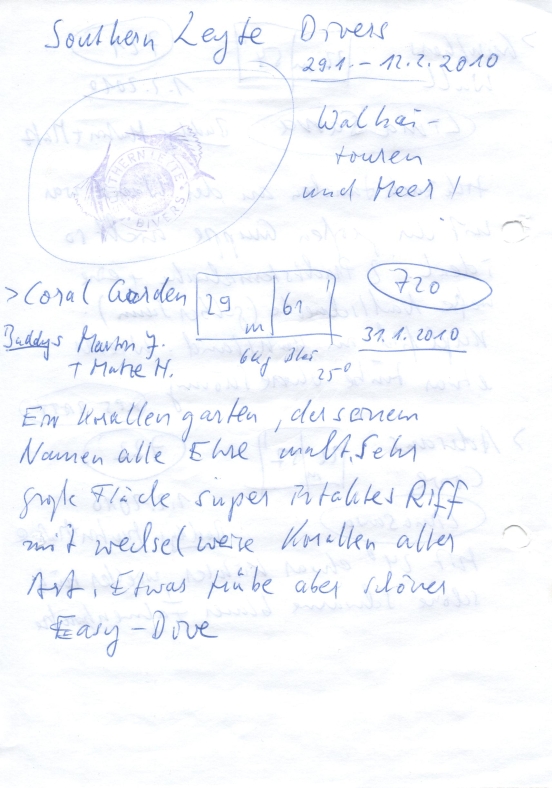 Southern Leyte Divers
29.1. – 12.2.2010
Walhai-
touren
und Meer!
DIVERS
> Coral Garden 29 m 61' 720
Buddys Martin J. 31.1.2010
+ Matze H. 25°
Ein Korallengarten, der seinem
Namen alle Ehre macht. Sehr
große Fläche super intaktes Riff
mit wechselweise Korallen aller
Art. Etwas trübe aber schöner
Easy-Dive